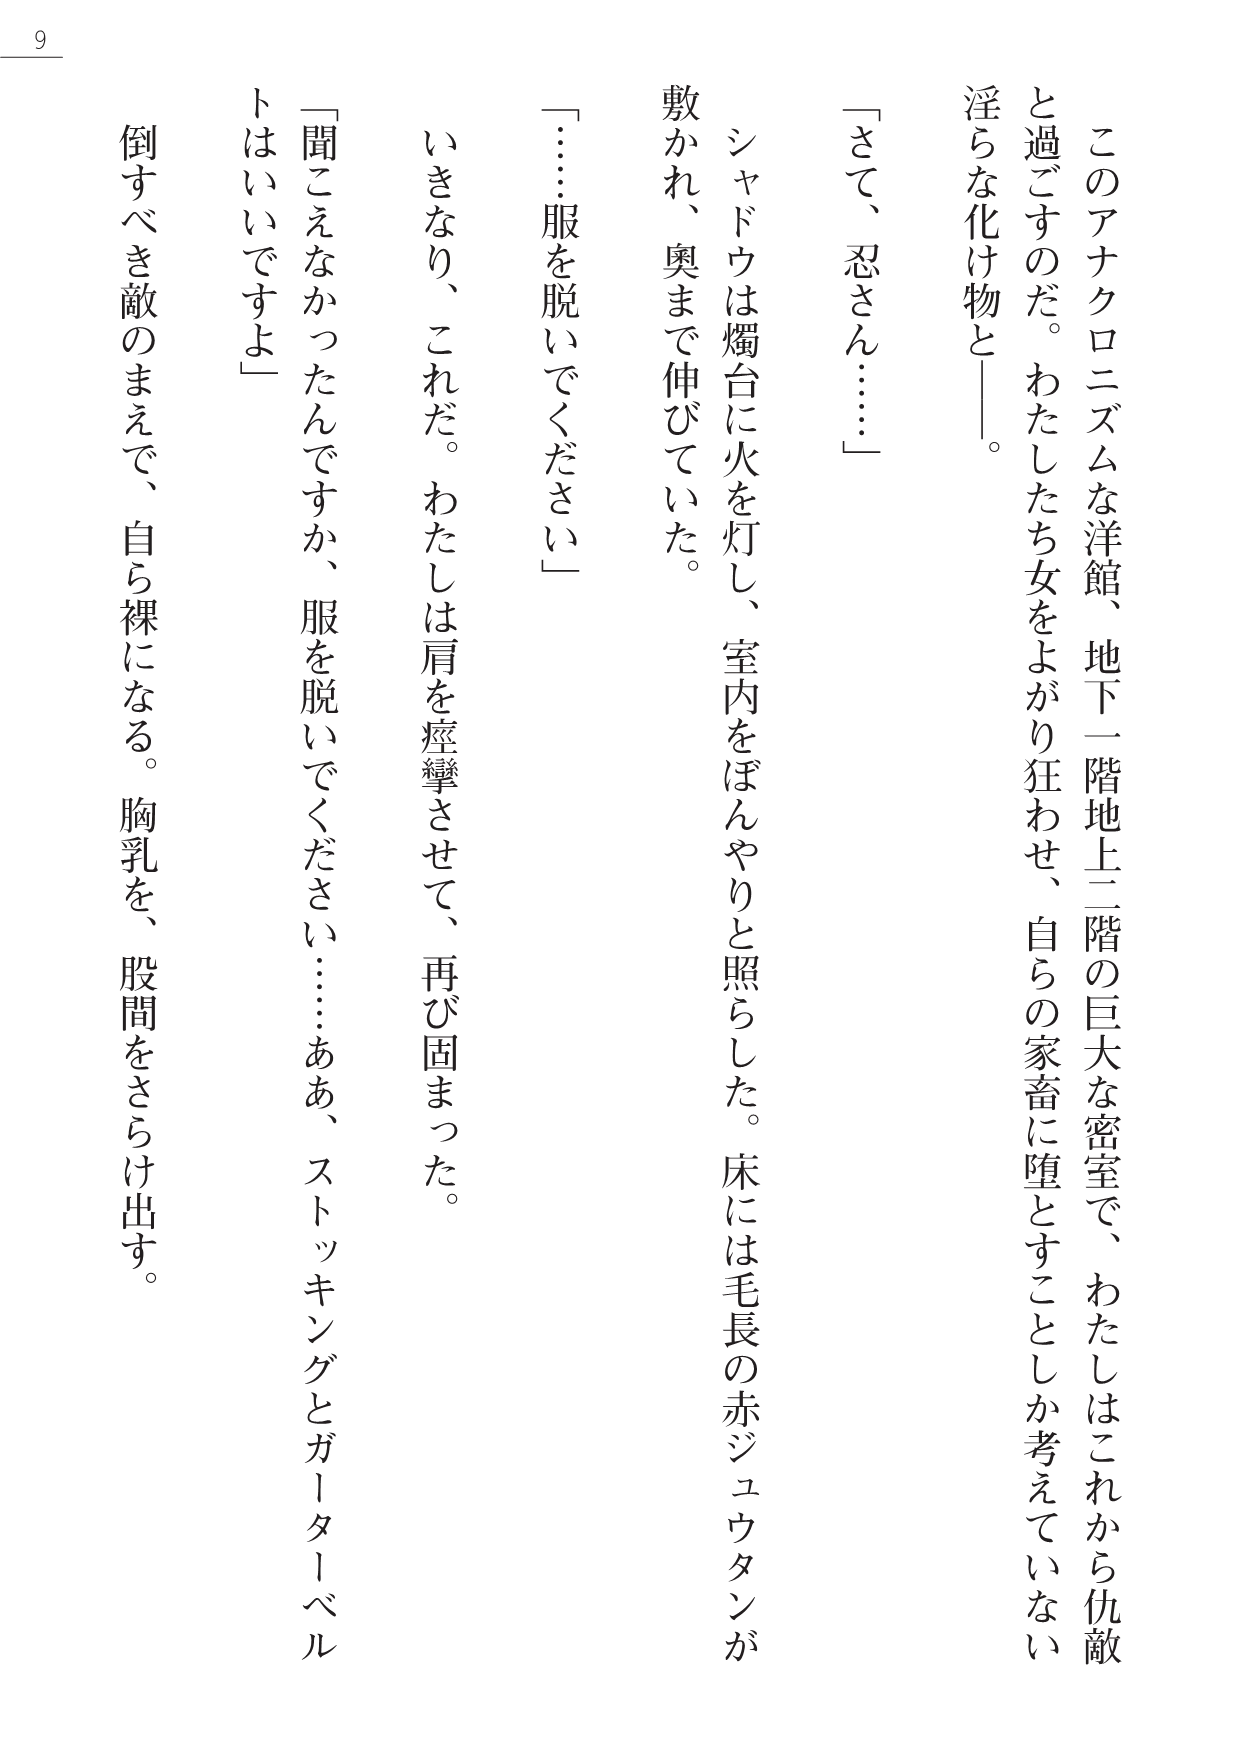 9
このアナクロニズムな洋館、地下一階地上二階の巨大な密室で、わたしはこれから仇敵
と過ごすのだ。わたしたち女をよがり狂わせ、自らの家畜に堕とすことしか考えていない
淫らな化け物と――。
「さて、忍さん……」
シャドウは燭台に火を灯し、室内をぼんやりと照らした。床には毛長の赤ジュウタンが
敷かれ、奥まで伸びていた。
「……服を脱いでください」
いきなり、これだ。わたしは肩を痙攣させて、再び固まった。
「聞こえなかったんですか、服を脱いでください……ああ、ストッキングとガーターベル
トはいいですよ」
倒すべき敵のまえで、自ら裸になる。胸乳を、股間をさらけ出す。